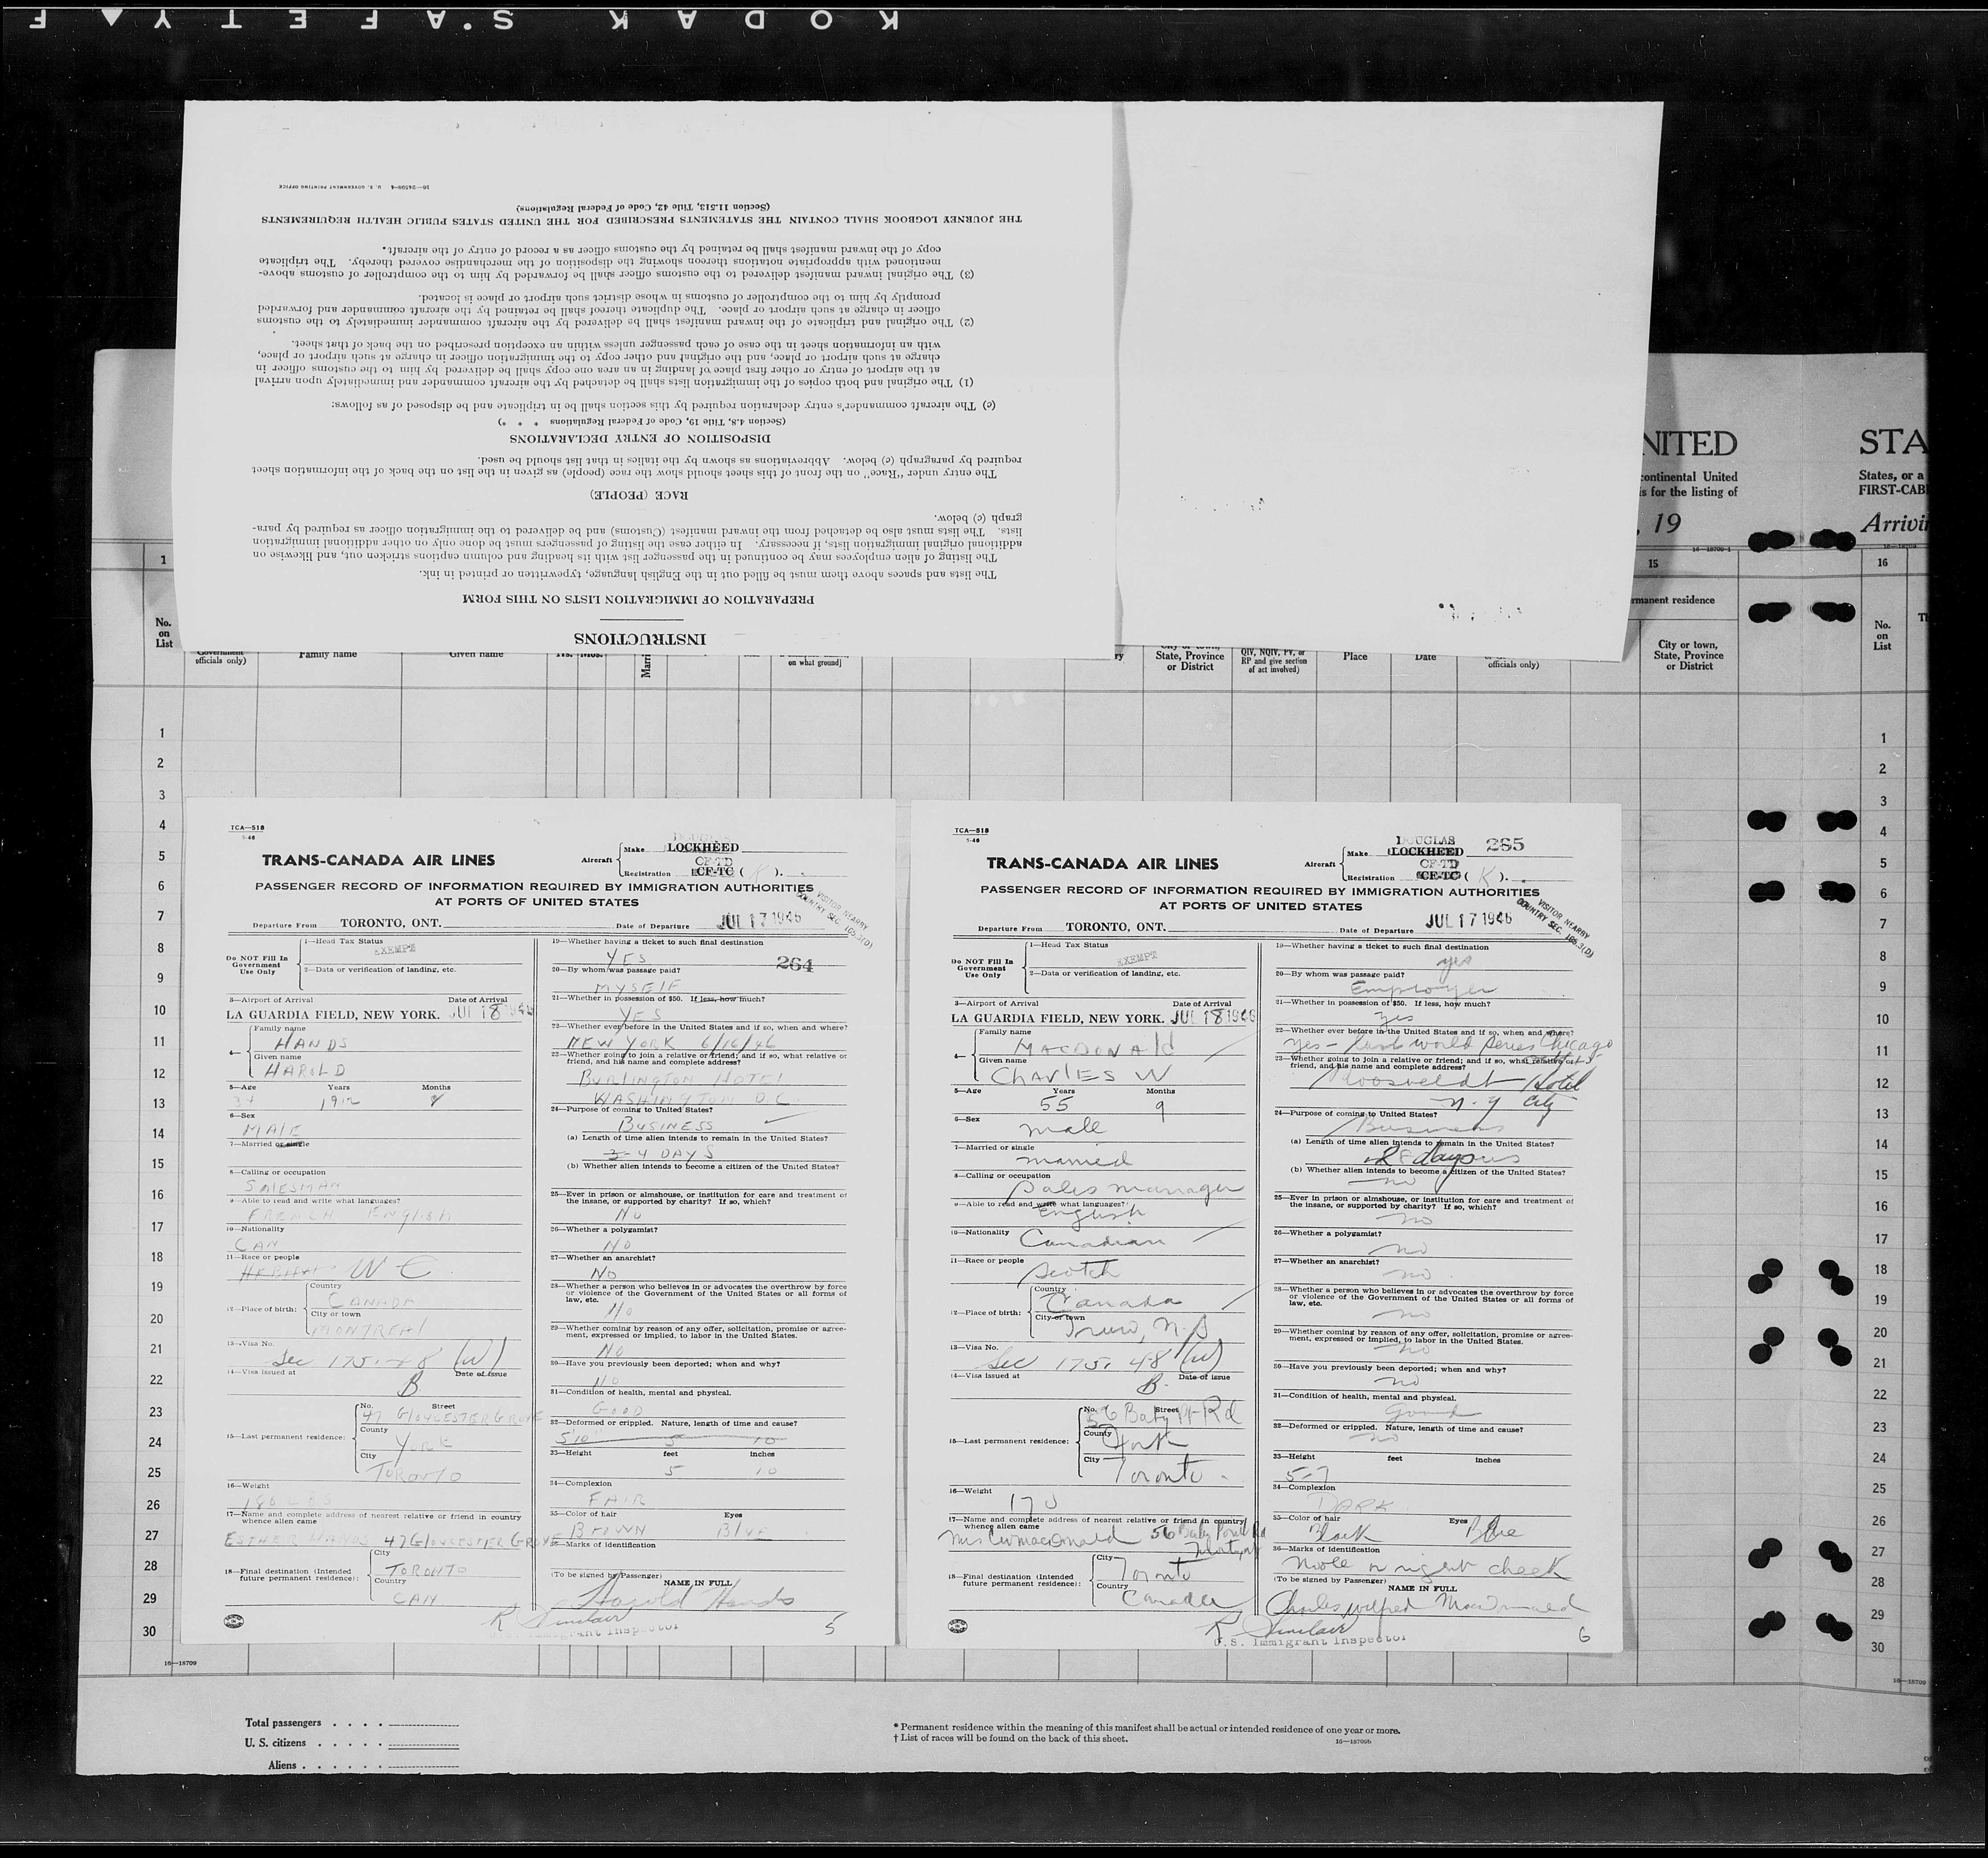 KODAK S.AFETY F
INSTRUCTIONS
PREPARATION OF IMMIGRATION LISTS ON THIS FORM
The lists and spaces above them must be filled out in the English language, typewritten or printed in ink.
The listing of alien employees may be continued in the passenger list with its heading and column captions stricken out, and likewise on
additional original immigration lists, if necessary. In either case the listing of passengers must be done only on other additional immigration
lists. The lists must also be detached from the inward manifest (Customs) and be delivered to the immigration officer as required by para-
graph (c) below.
RACE (PEOPLE)
The entry under "Race" on the front of this sheet should show the race (people) as given in the list on the back of the information sheet
required by paragraph (c) below. Abbreviations as shown by the italics in that list should be used.
DISPOSITION OF ENTRY DECLARATIONS
(Section 4.8, Title 19, Code of Federal Regulations * * *)
(c) The aircraft commander's entry declaration required by this section shall be in triplicate and be disposed of as follows:
(1) The original and both copies of the immigration lists shall be detached by the aircraft commander and immediately upon arrival
at the airport of entry or other first place of landing in an area one copy shall be delivered by him to the customs officer in
charge at such airport or place, and the original and other copy to the immigration officer in charge at such airport or place,
with an information sheet in the case of each passenger unless within an exception prescribed on the back of that sheet.
(2) The original and triplicate of the inward manifest shall be delivered by the aircraft commander immediately to the customs
officer in charge at such airport or place. The duplicate thereof shall be retained by the aircraft commander and forwarded
promptly by him to the comptroller of customs in whose district such airport or place is located.
(3) The original inward manifest delivered to the customs officer shall be forwarded by him to the comptroller of customs above-
mentioned with appropriate notations thereon showing the disposition of the merchandise covered thereby. The triplicate
copy of the inward manifest shall be retained by the customs officer as a record of entry of the aircraft.
THE JOURNEY LOGBOOK SHALL CONTAIN THE STATEMENTS PRESCRIBED FOR THE UNITED STATES PUBLIC HEALTH REQUIREMENTS
(Section 11.513, Title 42, Code of Federal Regulations)
16—24598-4 U. S. GOVERNMENT PRINTING OFFICE
NITED
STA
continental United
is for the listing of
States, or a
FIRST-CAB
, 19
Arrivi
16—18709-1
1
15
16
rmanent residence
No.
on
List
Government
officials only)
Family name
Given name
Yrs.
Mos.
Marri
on what ground]
City or town,
State, Province
or District
QIV, NQIV, PV, or
RP and give section
of act involved)
Place
Date
officials only)
City or town,
State, Province
or District
No.
on
List
1
2
3
4
5
6
7
8
9
10
11
12
13
14
15
16
17
18
19
20
21
22
23
24
25
26
27
28
29
30
16—18709
TCA—518
TRANS-CANADA AIR LINES
Aircraft
Make
DOUGLAS
LOCKHEED
Registration
CF-TD
CF-TC ( K ).
PASSENGER RECORD OF INFORMATION REQUIRED BY IMMIGRATION AUTHORITIES
AT PORTS OF UNITED STATES
VISITOR NEARBY
COUNTRY SEC. 165.3(D)
Departure From TORONTO, ONT.
Date of Departure JUL 17 1946
Do NOT Fill In
Government
Use Only
1—Head Tax Status
EXEMPT
2—Data or verification of landing, etc.
3—Airport of Arrival
Date of Arrival
LA GUARDIA FIELD, NEW YORK. JUL 18 1946
4—
Family name
HANDS
Given name
HAROLD
5—Age
Years
Months
34 1912 8
6—Sex
MALE
7—Married or single
8—Calling or occupation
SALESMAN
9—Able to read and write what languages?
FRENCH ENGLISH
10—Nationality
CAN
11—Race or people
W C
12—Place of birth:
Country
CANADA
City or town
MONTREAL
13—Visa No.
Sec 175.48 (W)
14—Visa Issued at
Date of Issue
B
15—Last permanent residence:
No.
Street
47 GLOUCESTER GROVE
County
YORK
City
TORONTO
16—Weight
180 LBS
17—Name and complete address of nearest relative or friend in country
whence alien came
ESTHER HANDS 47 GLOUCESTER GROVE
18—Final destination (Intended
future permanent residence):
City
TORONTO
Country
CAN
19—Whether having a ticket to such final destination
YES
264
20—By whom was passage paid?
MYSELF
21—Whether in possession of $50. If less, how much?
YES
22—Whether ever before in the United States and if so, when and where?
NEW YORK 6/16/46
23—Whether going to join a relative or friend; and if so, what relative or
friend, and his name and complete address?
BURLINGTON HOTEL
WASHINGTON D.C.
24—Purpose of coming to United States?
BUSINESS
(a) Length of time alien intends to remain in the United States?
3-4 DAYS
(b) Whether alien intends to become a citizen of the United States?
25—Ever in prison or almshouse, or institution for care and treatment of
the insane, or supported by charity? If so, which?
NO
26—Whether a polygamist?
NO
27—Whether an anarchist?
NO
28—Whether a person who believes in or advocates the overthrow by force
or violence of the Government of the United States or all forms of
law, etc.
NO
29—Whether coming by reason of any offer, solicitation, promise or agree-
ment, expressed or implied, to labor in the United States.
NO
30—Have you previously been deported; when and why?
NO
31—Condition of health, mental and physical.
GOOD
32—Deformed or crippled. Nature, length of time and cause?
5'10" 5 10
33—Height
feet
inches
5 10
34—Complexion
FAIR
35—Color of hair
Eyes
BROWN BLUE
36—Marks of identification
(To be signed by Passenger)
NAME IN FULL
Harold Hands
R Sinclair
U.S. Immigrant Inspector
5
TCA—518
5-46
TRANS-CANADA AIR LINES
Aircraft
Make
DOUGLAS
LOCKHEED
285
Registration
CF-TD
CF-TC ( K ).
PASSENGER RECORD OF INFORMATION REQUIRED BY IMMIGRATION AUTHORITIES
AT PORTS OF UNITED STATES
VISITOR NEARBY
COUNTRY SEC. 165.3(D)
Departure From TORONTO, ONT.
Date of Departure JUL 17 1946
Do NOT Fill In
Government
Use Only
1—Head Tax Status
EXEMPT
2—Data or verification of landing, etc.
3—Airport of Arrival
Date of Arrival
LA GUARDIA FIELD, NEW YORK. JUL 18 1946
4—
Family name
MACDONALD
Given name
CHARLES W
5—Age
Years
Months
55 9
6—Sex
male
7—Married or single
married
8—Calling or occupation
Sales manager
9—Able to read and write what languages?
English
10—Nationality
Canadian
11—Race or people
Scotch
12—Place of birth:
Country
Canada
City or town
Truro, N.S
13—Visa No.
Sec 175.48 (W)
14—Visa Issued at
Date of Issue
B.
15—Last permanent residence:
No.
Street
56 Baby Pt Rd
County
York
City
Toronto
16—Weight
170
17—Name and complete address of nearest relative or friend in country
whence alien came
Mrs C W Macdonald 56 Baby Point Rd
18—Final destination (Intended
future permanent residence):
City
Toronto
Country
Canada
19—Whether having a ticket to such final destination
yes
20—By whom was passage paid?
Employer
21—Whether in possession of $50. If less, how much?
yes
22—Whether ever before in the United States and if so, when and where?
yes - last world series Chicago
23—Whether going to join a relative or friend; and if so, what relative or
friend, and his name and complete address?
Roosveldt Hotel
N. Y City
24—Purpose of coming to United States?
Business
(a) Length of time alien intends to remain in the United States?
2 days
(b) Whether alien intends to become a citizen of the United States?
no
25—Ever in prison or almshouse, or institution for care and treatment of
the insane, or supported by charity? If so, which?
no
26—Whether a polygamist?
no
27—Whether an anarchist?
no
28—Whether a person who believes in or advocates the overthrow by force
or violence of the Government of the United States or all forms of
law, etc.
no
29—Whether coming by reason of any offer, solicitation, promise or agree-
ment, expressed or implied, to labor in the United States.
no
30—Have you previously been deported; when and why?
no
31—Condition of health, mental and physical.
Good
32—Deformed or crippled. Nature, length of time and cause?
no
33—Height
feet
inches
5-7
34—Complexion
DARK
35—Color of hair
Eyes
Black Blue
36—Marks of identification
Mole on right cheek
(To be signed by Passenger)
NAME IN FULL
Charles Wilfred MacDonald
R Sinclair
U.S. Immigrant Inspector
6
1
2
3
4
5
6
7
8
9
10
11
12
13
14
15
16
17
18
19
20
21
22
23
24
25
26
27
28
29
30
16—18709
Total passengers . . . .
U. S. citizens . . . . .
Aliens . . . . . .
* Permanent residence within the meaning of this manifest shall be actual or intended residence of one year or more.
† List of races will be found on the back of this sheet.
16—18709b